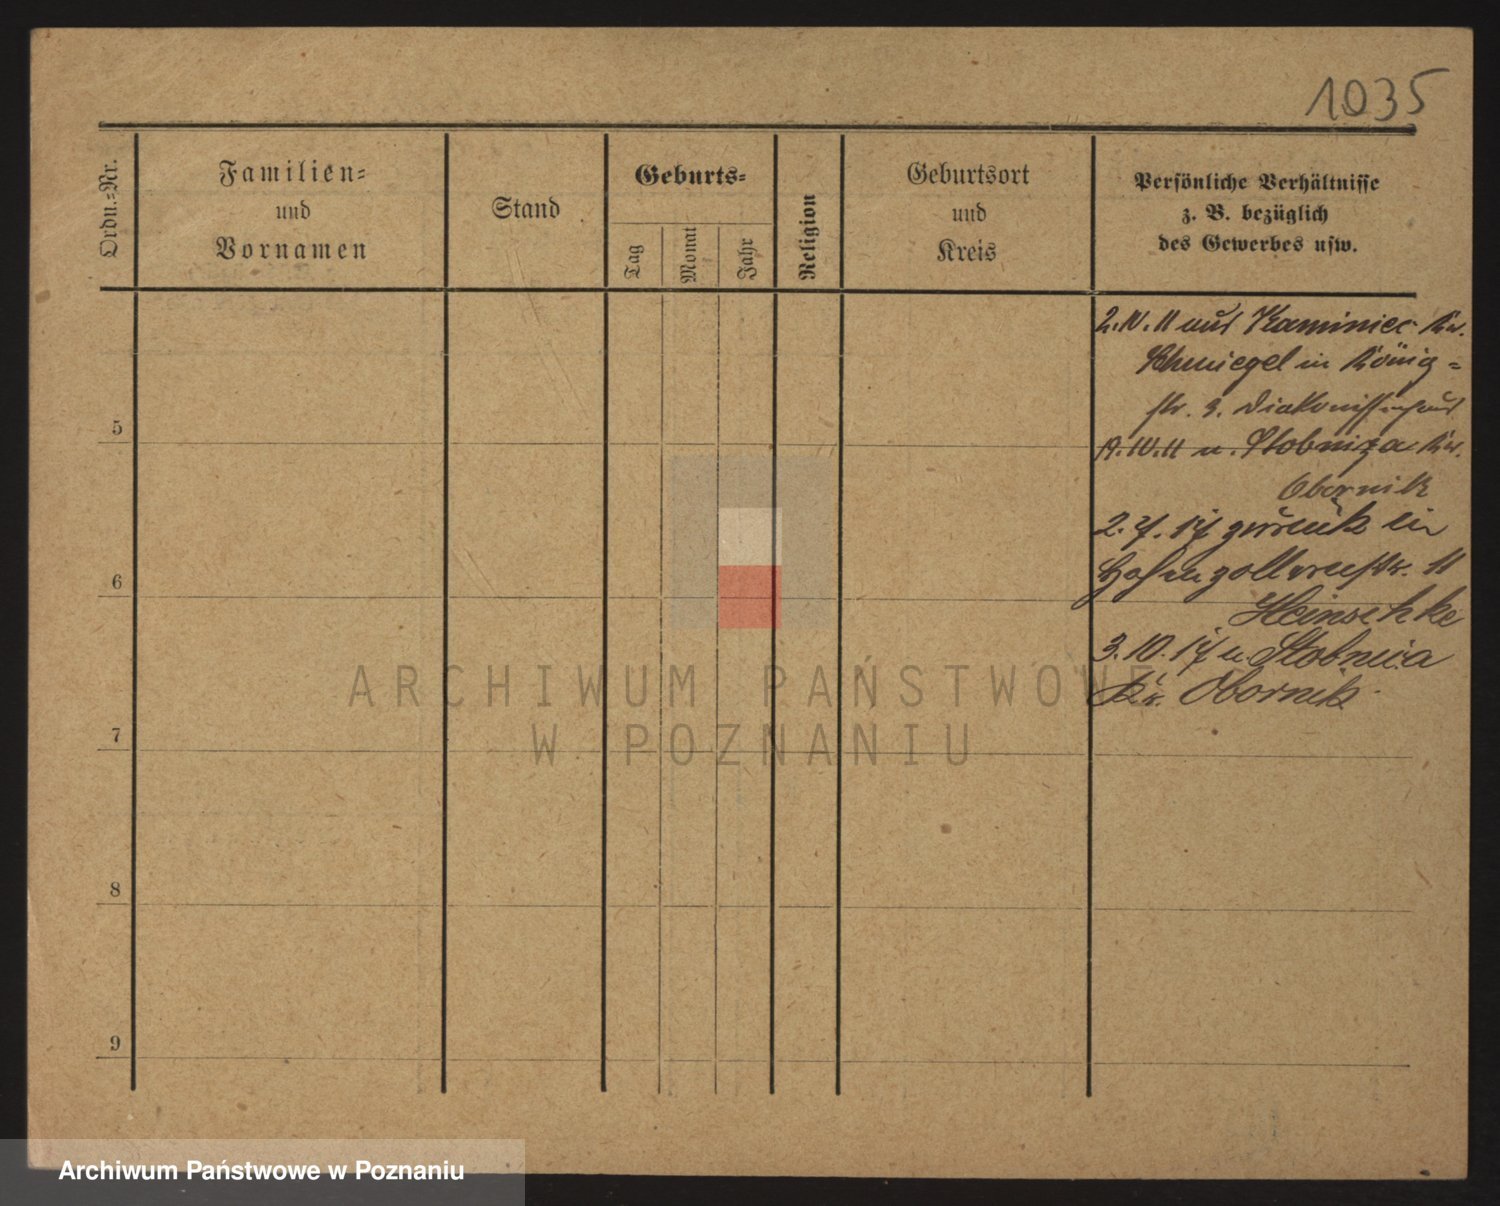 1035
Ordn.-Nr.
Familien-
und
Vornamen
Stand
Geburts-
Tag
Monat
Jahr
Religion
Geburtsort
und
Kreis
Persönliche Verhältnisse
z. B. bezüglich
des Gewerbes usw.
2.10.11 aus Kaminiec Kr.
Schmiegel in König-
str. 3. Diakonissenhaus
5
19.10.11 n. Stobniza Kr.
Obornik
2.7.17 zurück in
6
Hohenzollernstr. 11
Heinschke
3.10.17 n. Stobnica
Kr. Obornik.
7
8
9
ARCHIWUM PAŃSTWOWE
W POZNANIU
Archiwum Państwowe w Poznaniu